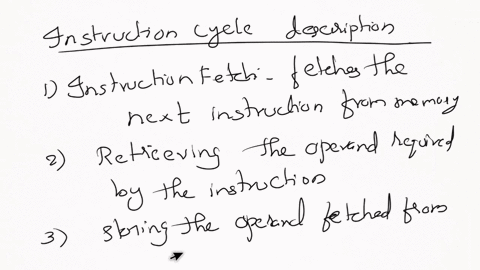 Instruction cycle description
1) Instruction Fetch - fetches the
next instruction from memory
2) Retrieving the operand required
by the instruction
3) Storing the operand fetched from